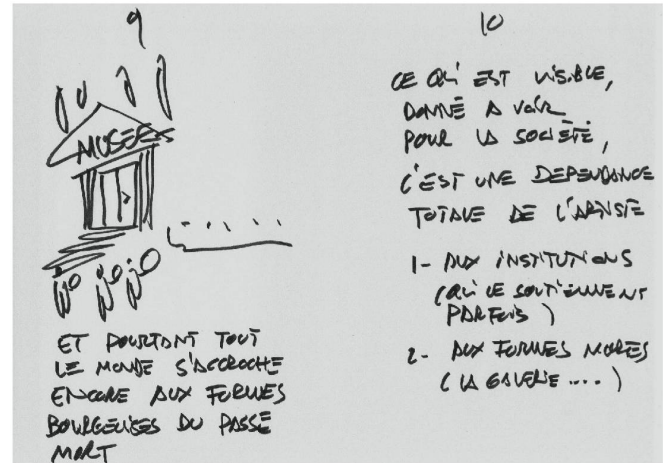 9
MUSEE
ET POURTANT TOUT
LE MONDE S'ACCROCHE
ENCORE AUX FORMES
BOURGEOISES DU PASSÉ
MORT
10
CE QUI EST VISIBLE,
DONNÉ A VOIR
POUR LA SOCIÉTÉ,
C'EST UNE DEPENDANCE
TOTALE DE L'ARTISTE
1- AUX INSTITUTIONS
(QUI LE SOUTIENNENT
PARFOIS)
2- AUX FORMES MORTES
(LA GALERIE....)